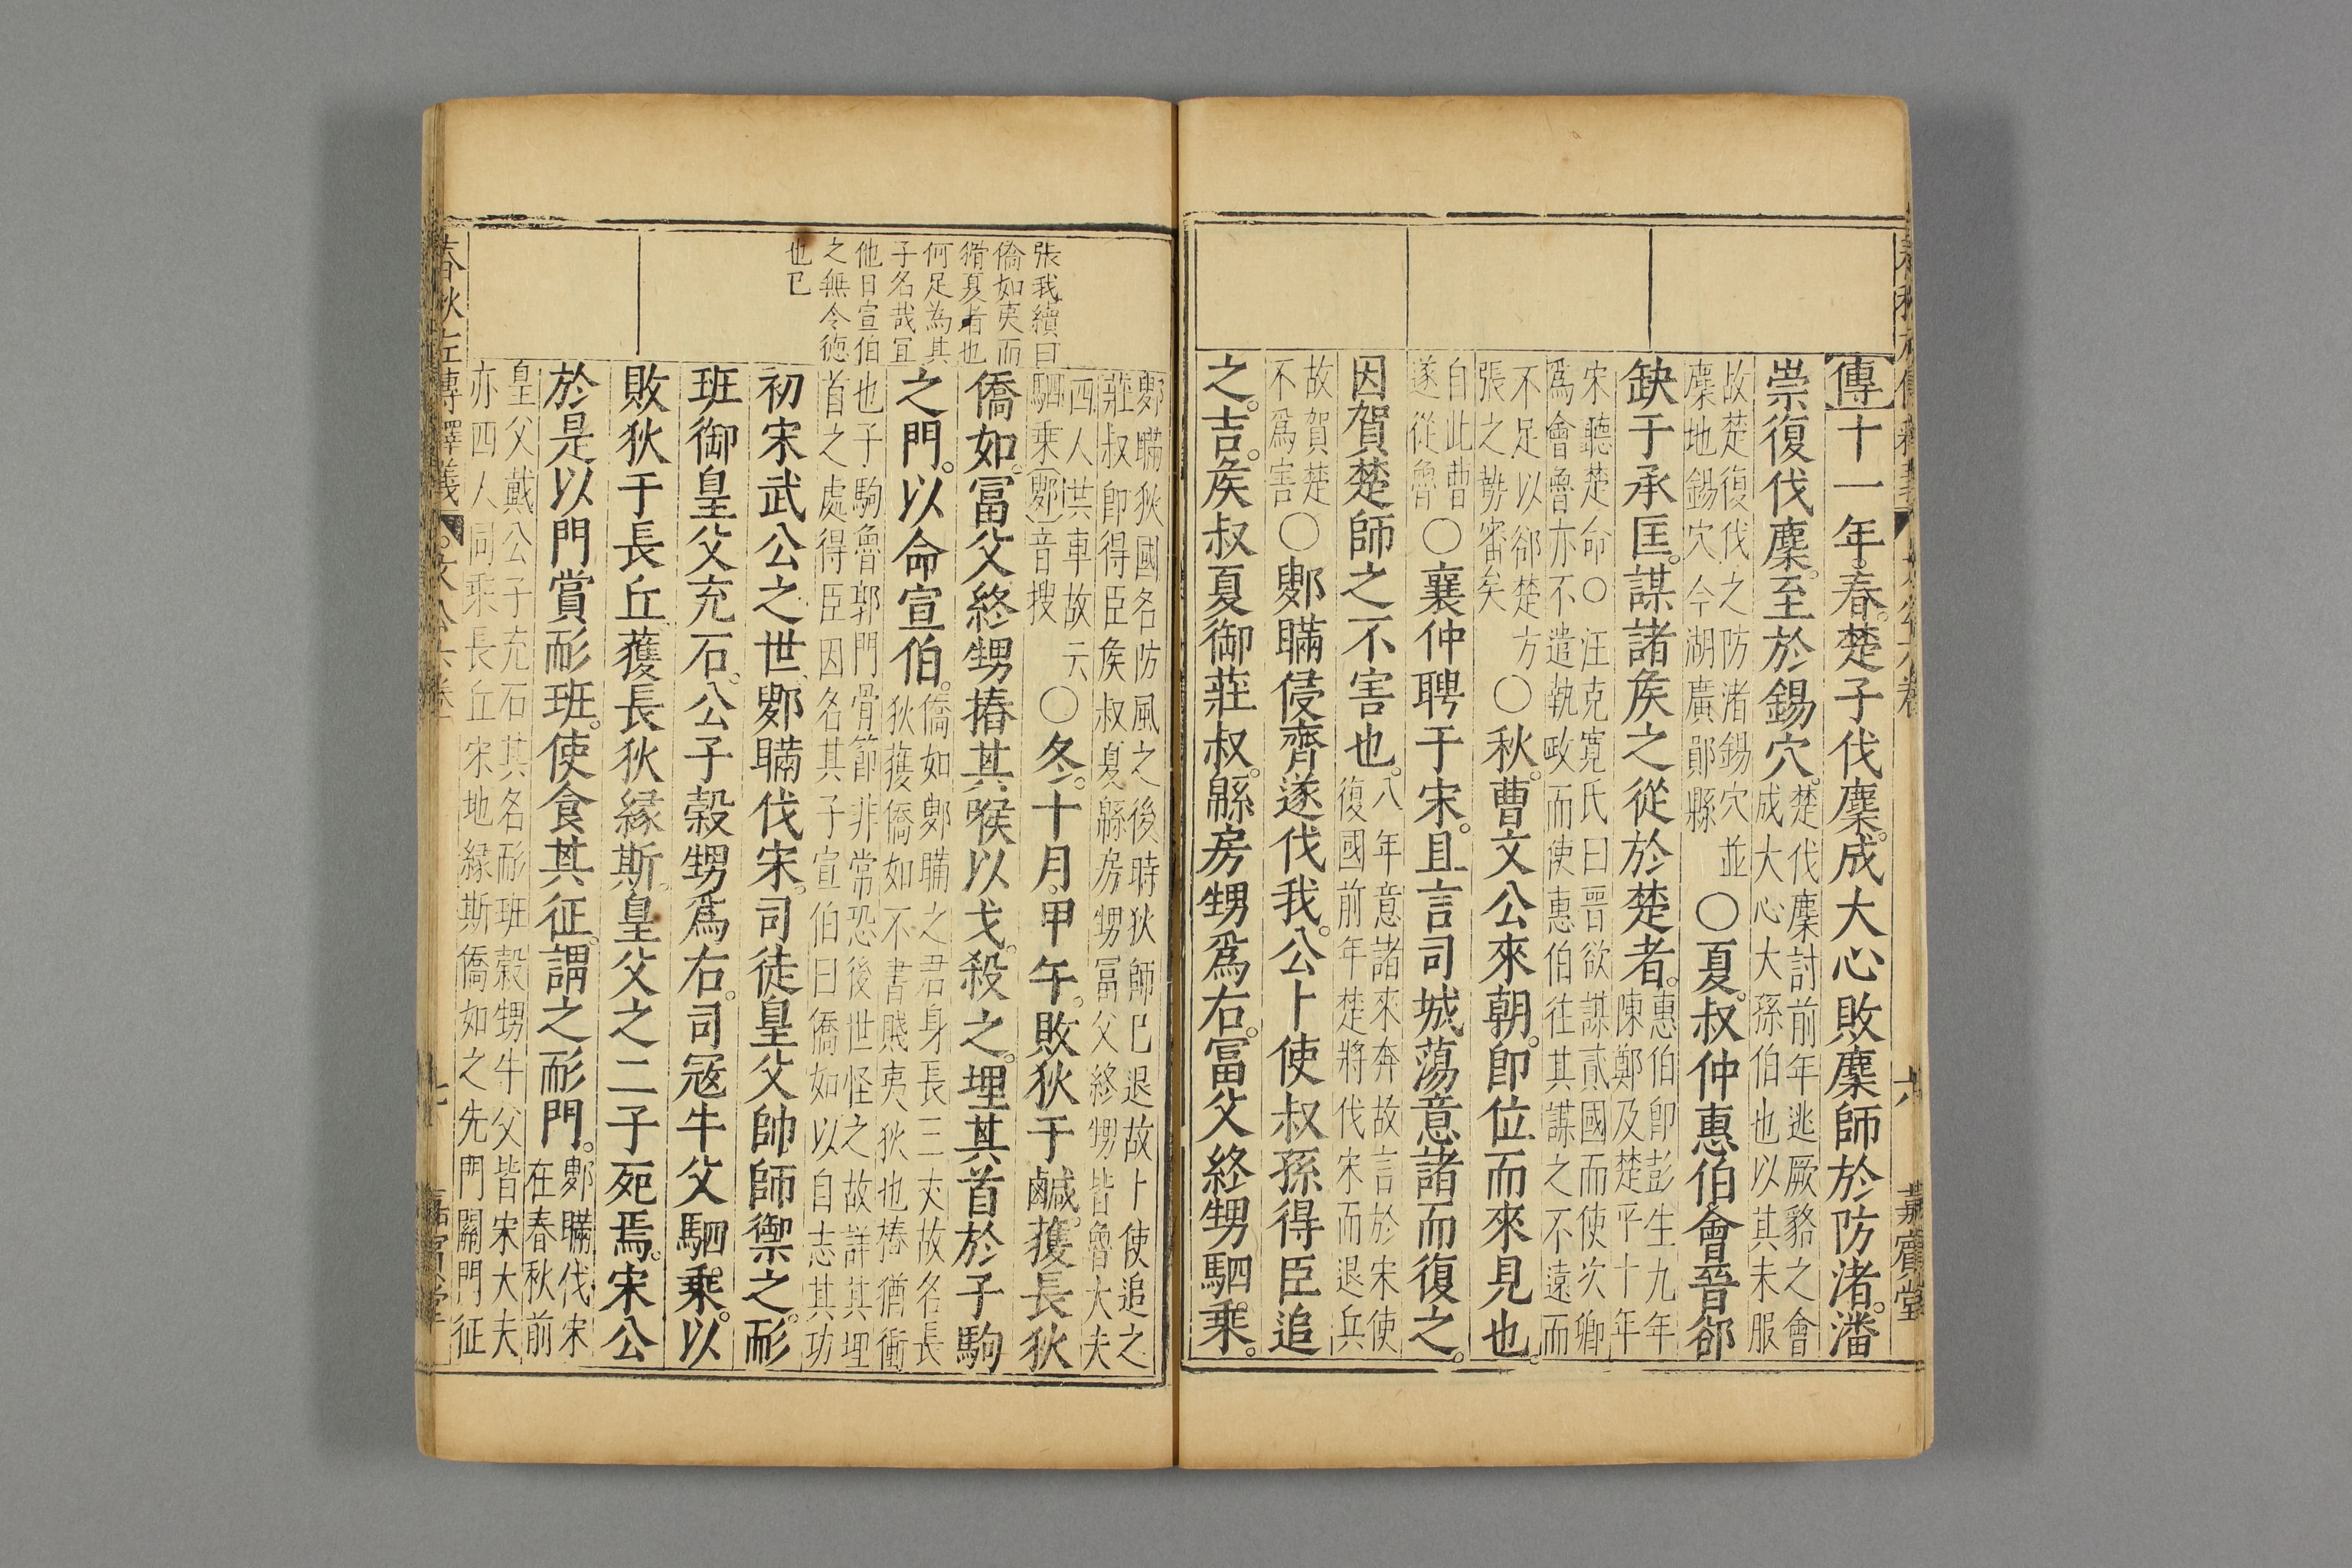 傳十一年。春。楚子伐麇。成大心敗麇師於防渚。潘
崇復伐麇。至於錫穴。楚伐麇討前年逃厥貉之會成大心大孫伯也以其未服
故楚復伐之防渚錫穴並麇地錫穴今湖廣鄖縣〇夏。叔仲惠伯會晉郤
缺于承匡。謀諸矦之從於楚者。惠伯即彭生九年陳鄭及楚平十年
宋聽楚命〇汪克寬氏曰晉欲謀貳國而使次卿爲會魯亦不遣執政而使惠伯往其謀之不遠而
不足以郤楚方張之勢審矣〇秋。曹文公來朝。即位而來見也。
自此曹遂從魯〇襄仲聘于宋。且言司城蕩意諸而復之。
因賀楚師之不害也。八年意諸來奔故言於宋使復國前年楚將伐宋而退兵
故賀楚不爲害〇鄋瞞侵齊。遂伐我。公卜使叔孫得臣追
之。吉。矦叔夏御莊叔。緜房甥爲右。冨父終甥駟乗。
嘉賓堂
張我續曰
僑如夷而
猾夏者也
何足為其
子名哉宜
他日宣伯
之無令徳
也已
鄋瞞狄國名防風之後時狄師已退故卜使追之莊叔即得臣矦叔夏緜房甥冨父終甥皆魯大夫
四人共車故云駟乗鄋音搜〇冬。十月。甲午。敗狄于鹹。獲長狄
僑如。冨父終甥摏其喉以戈。殺之。埋其首於子駒
之門。以命宣伯。僑如鄋瞞之君身長三丈故名長狄獲僑如不書賤夷狄也摏猶衝
也子駒魯郭門骨節非常恐後世怪之故詳其埋首之處得臣因名其子宣伯曰僑如以自志其功
初宋武公之世。鄋瞞伐宋。司徒皇父帥師禦之。耏
班御皇父充石。公子榖甥爲右。司冦牛父駟乗。以
敗狄于長丘。獲長狄縁斯。皇父之二子死焉。宋公
於是以門賞耏班。使食其征。謂之耏門。鄋瞞伐宋在春秋前
皇父戴公子充石其名耏班榖甥牛父皆宋大夫亦四人同乗長丘宋地縁斯僑如之先門關門征
春秋左傳釋義